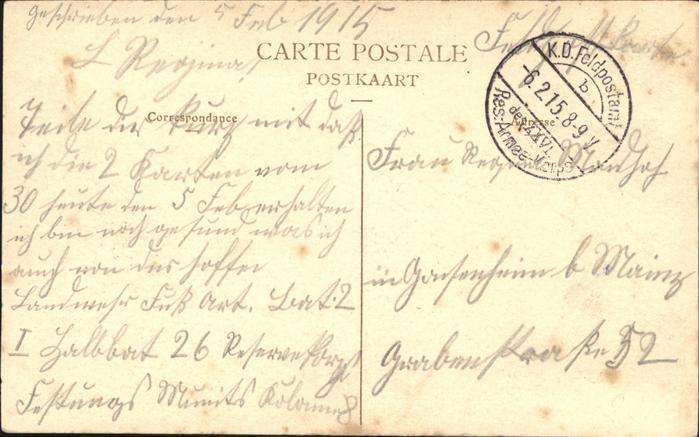 geschrieben den 5 Feb 1915
L Regina!
CARTE POSTALE
POSTKAART
Correspondance
Adresse
K.D. Feldpostamt
b
-6.2.15 8-9 V
des XXVI.
Res: Armee-Korps
Teile dir kurz mit daß
ich die 2 Karten vom
30 heute den 5 Feb erhalten
ich bin noch gesund was ich
auch von dir hoffe
Landwehr Fuß Art. Bat. 2
I Halbbat 26 Reservekorps
Festungs Munits Kolonne 8
Feldpostkarte
Frau Regina
in Geisenheim b Mainz
Grabenstraße 52